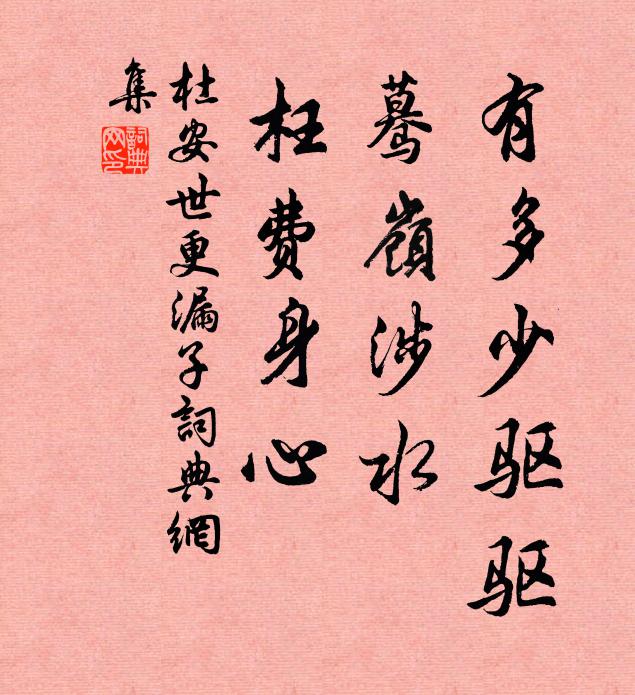 有多少驱驱
驀嶺涉水
枉費身心
杜安世更漏子詞典網
集
詞典
网印